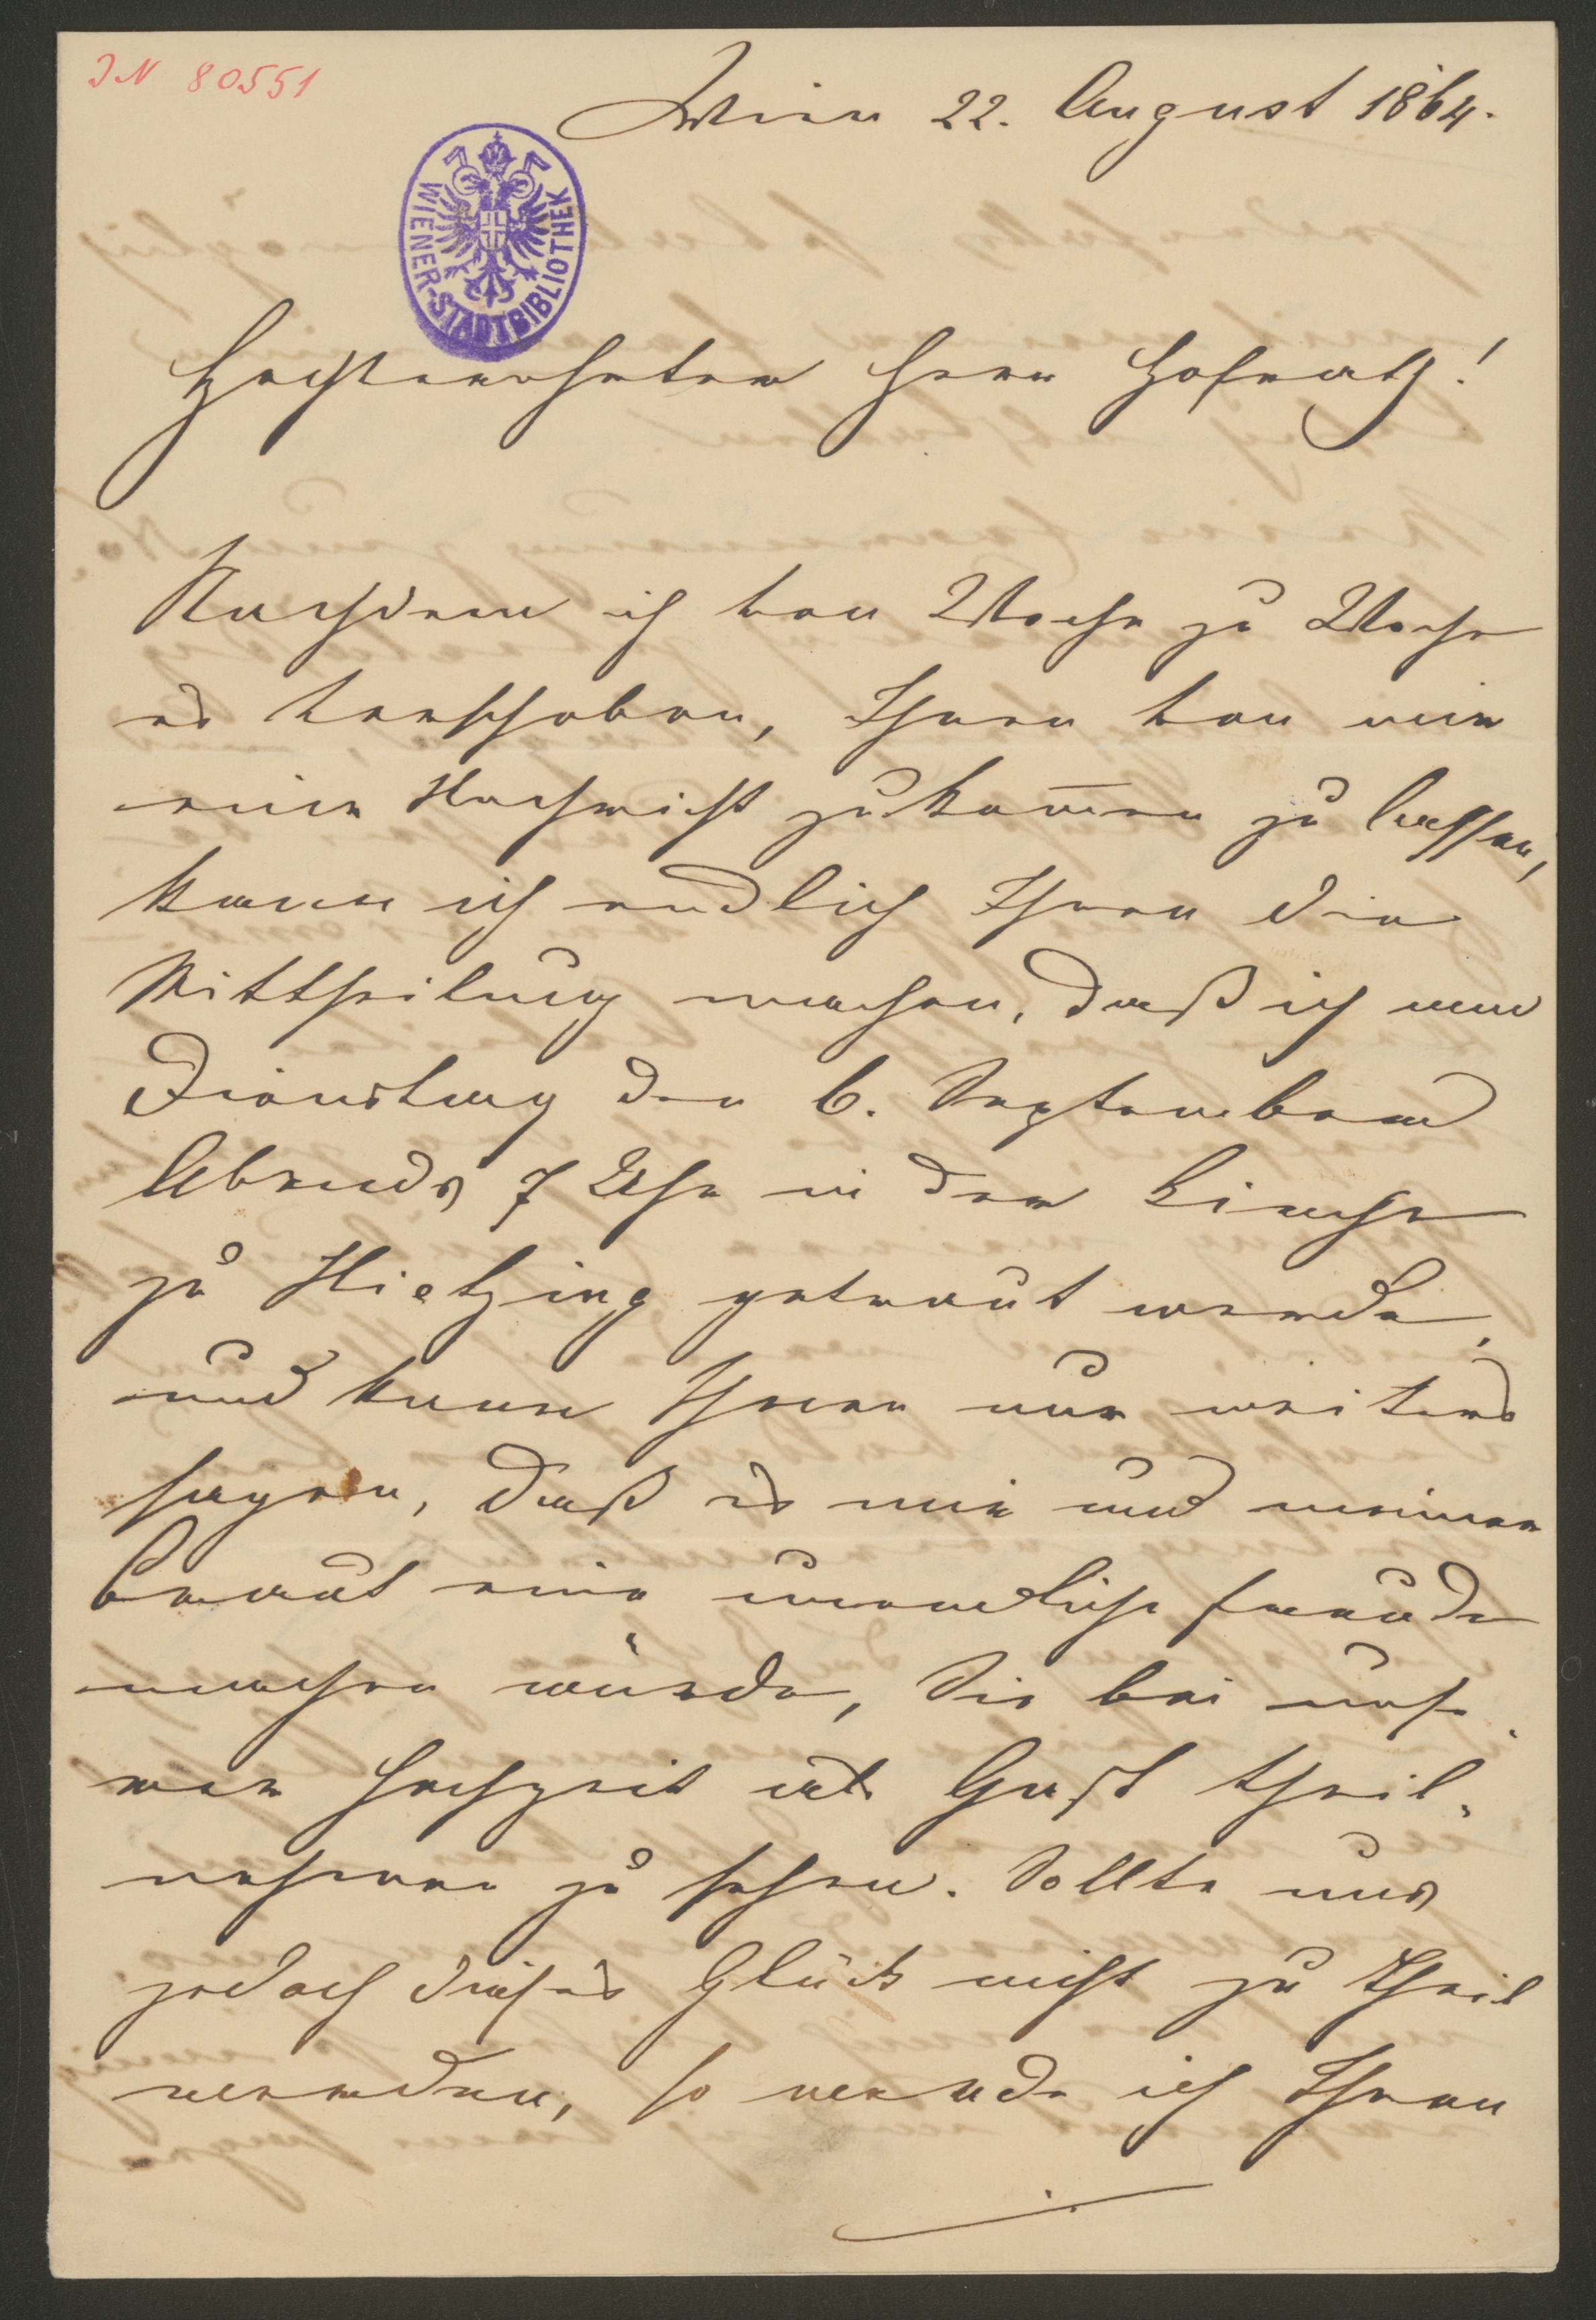 IN 80551
Wien 22. August 1864.
WIENER-STADTBIBLIOTHEK
Hochverehrter Herr Hofrath!
Nachdem ich von Woche zu Woche
es verschoben, Ihnen von mir
eine Nachricht zukom̅en zu lassen,
kann ich endlich Ihnen die
Mittheilung machen, daß ich nun
Dienstag den 6. September
Abends 7 Uhr in der Kirche
zu Hietzing getraut werde,
und kann Ihnen nur weiters
sagen, daß es mir und meiner
Braut eine unendliche Freude
machen würde, Sie bei unse-
rer Hochzeit als Gast theil-
nehmen zu sehen. Sollte uns
jedoch dieses Glück nicht zu Theil
werden, so werde ich Ihnen